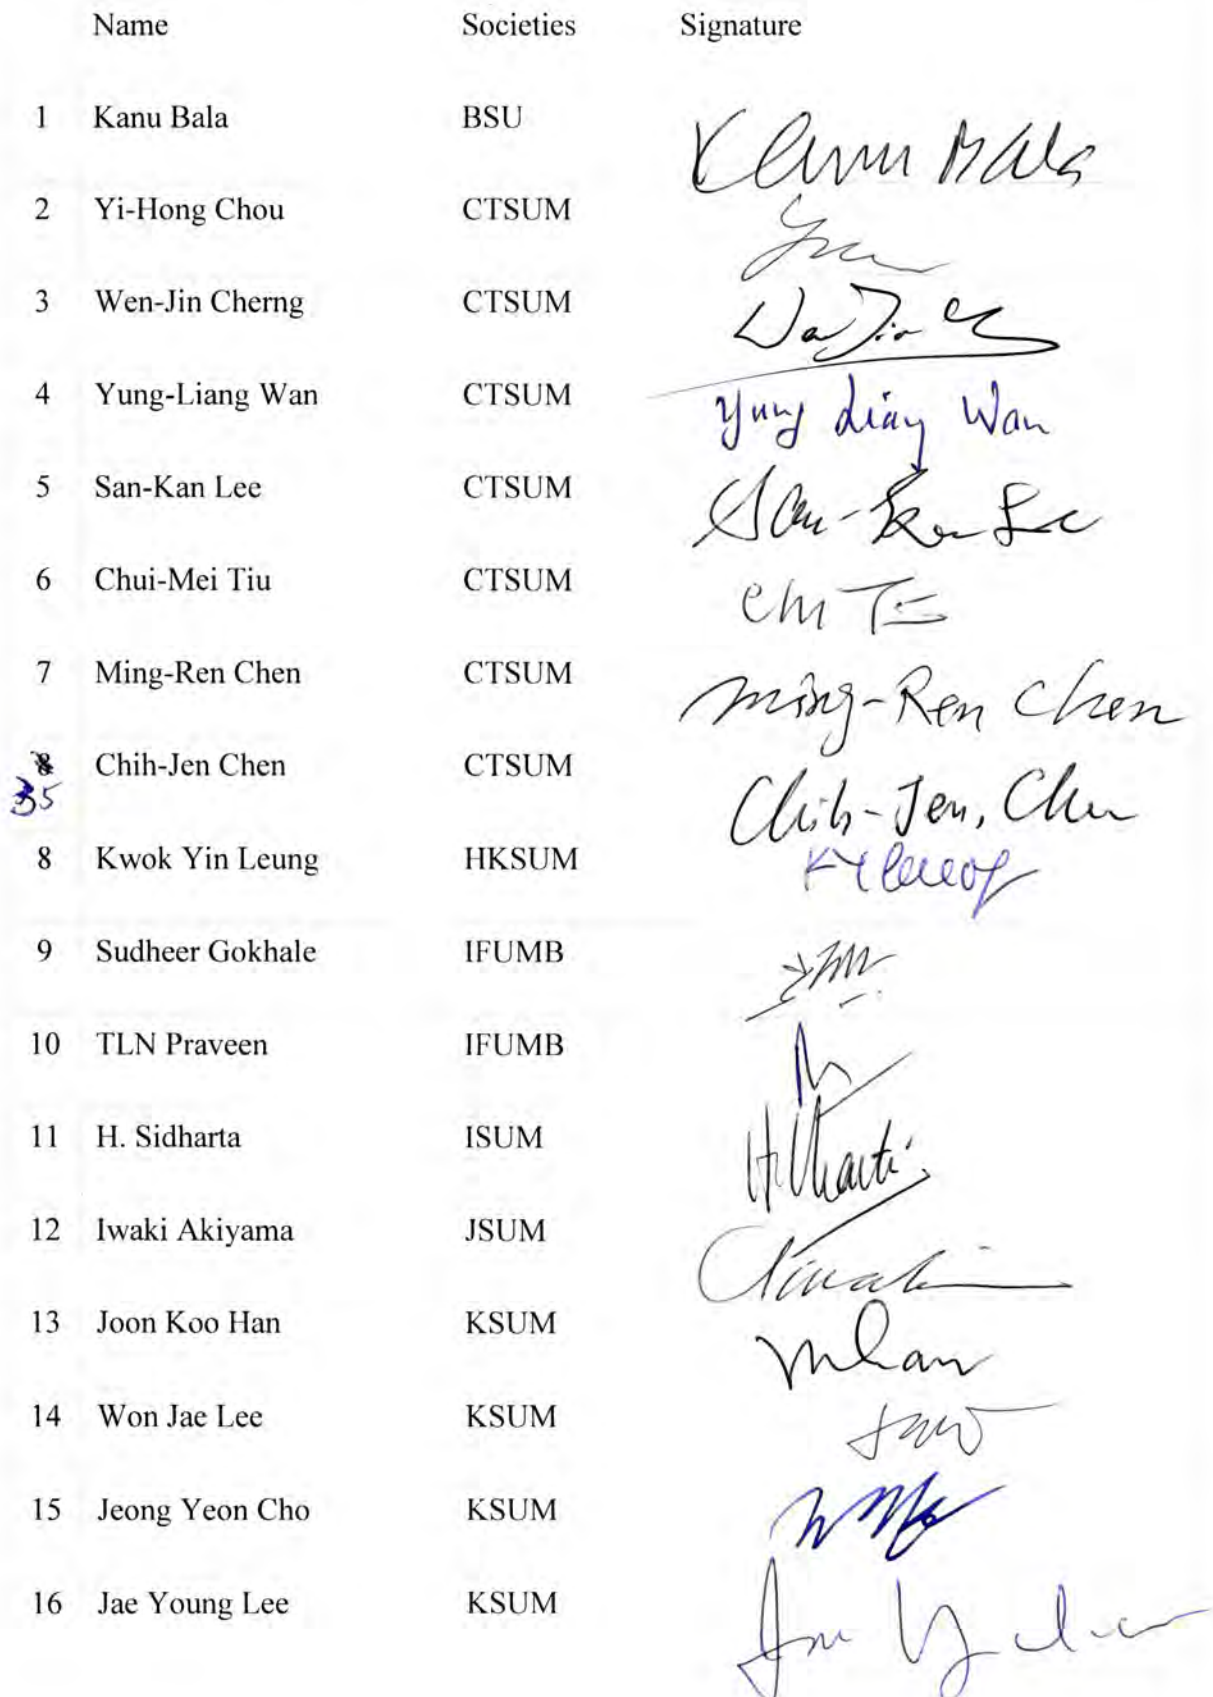 Name Societies Signature
1 Kanu Bala BSU Kanu Bala
2 Yi-Hong Chou CTSUM
3 Wen-Jin Cherng CTSUM
4 Yung-Liang Wan CTSUM Yung Liang Wan
5 San-Kan Lee CTSUM San-Kan Lee
6 Chui-Mei Tiu CTSUM
7 Ming-Ren Chen CTSUM Ming-Ren Chen
8 Chih-Jen Chen CTSUM Chih-Jen, Chen
35
8 Kwok Yin Leung HKSUM KY Leung
9 Sudheer Gokhale IFUMB
10 TLN Praveen IFUMB
11 H. Sidharta ISUM
12 Iwaki Akiyama JSUM
13 Joon Koo Han KSUM
14 Won Jae Lee KSUM
15 Jeong Yeon Cho KSUM
16 Jae Young Lee KSUM